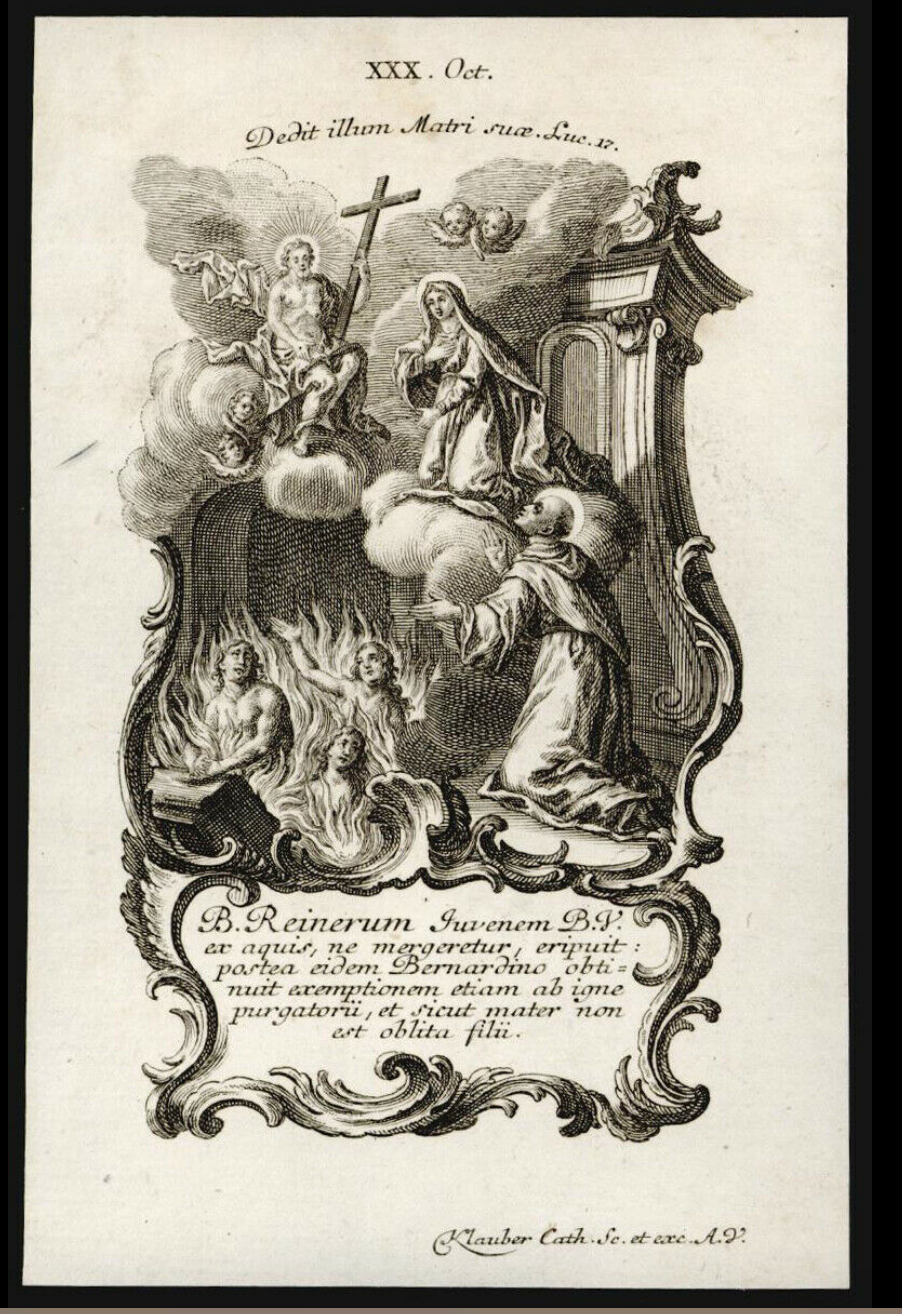 XXX. Oct.
Dedit illum Matri suæ. Luc. 17.
B. Reinerum Juvenem B.V.
ex aquis, ne mergeretur, eripuit:
postea eidem Bernardino obti=
nuit exemptionem etiam ab igne
purgatorii, et sicut mater non
est oblita filii.
Klauber Cath. Sc. et exc. A.V.